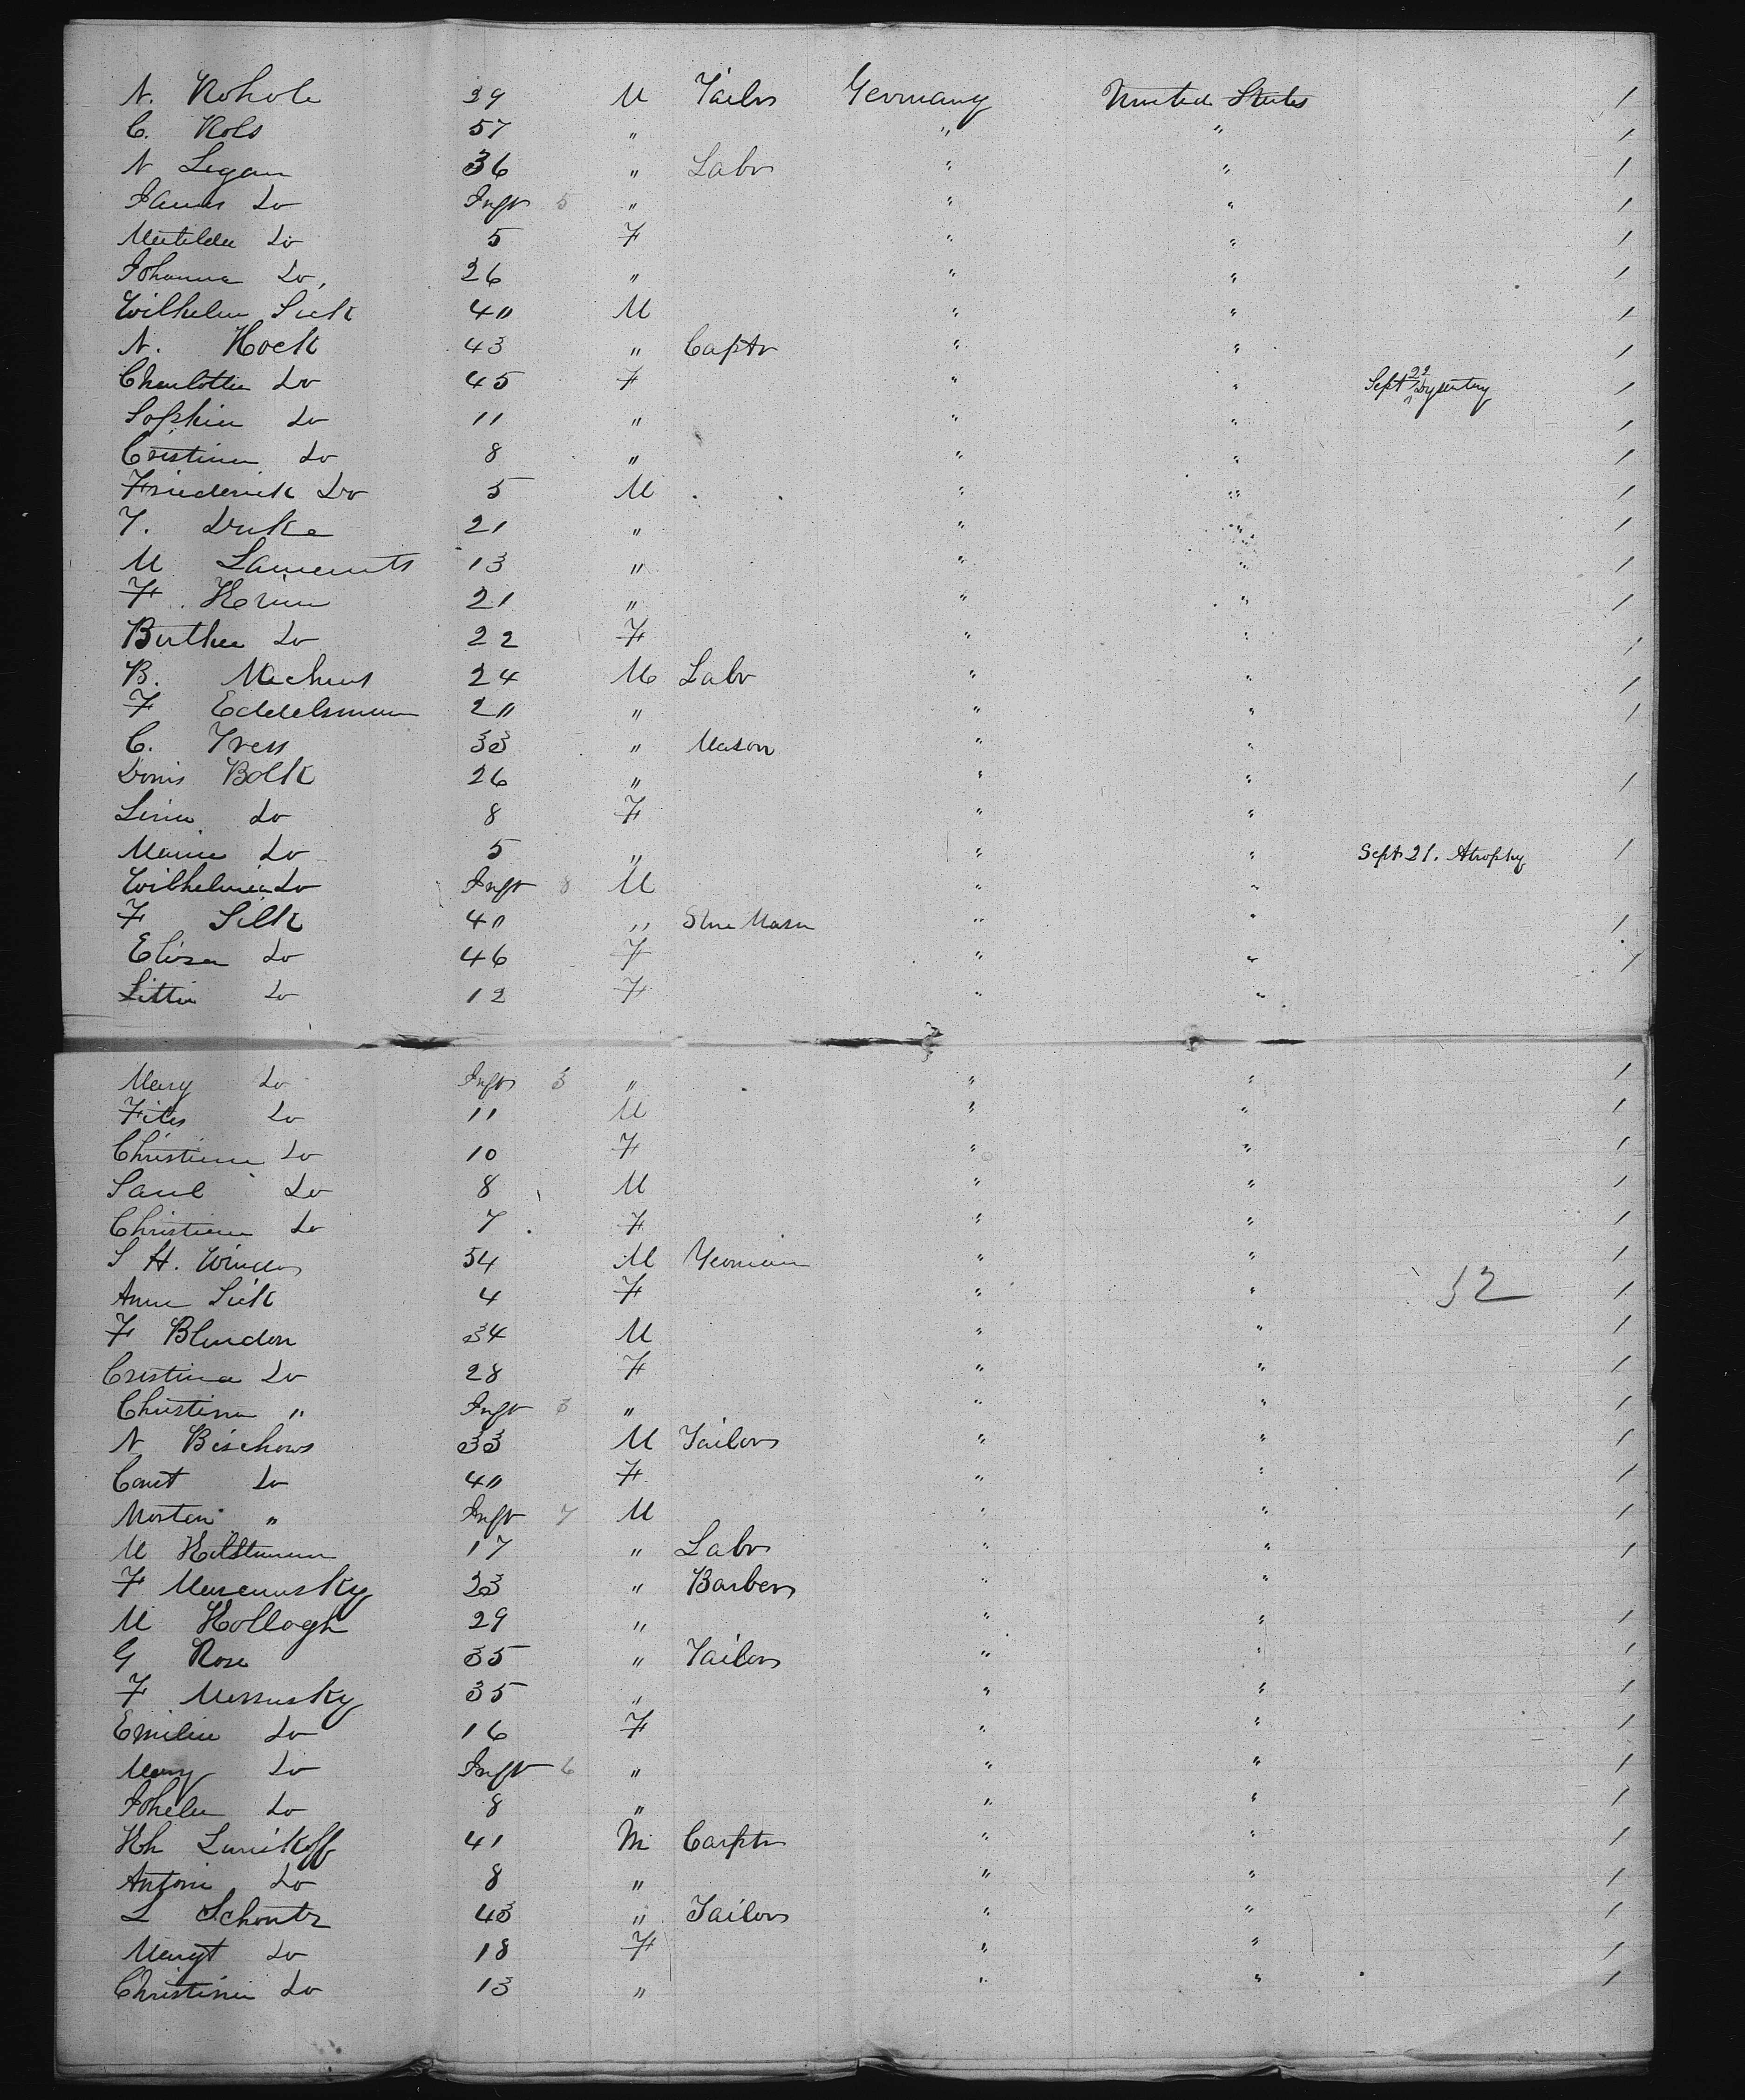 N. Rohole 39 M Tailor Germany United States /
C. Rols 57 " " " /
N Legan 36 " Labr " " /
James Do Inft 5 " " " /
Matilda Do 5 F " " /
Johanna Do, 26 " " " /
Wilhelm Sick 40 M " " /
N. Hock 43 " Captr " " /
Charlotta Do 45 F " " Sept 22 Dysentery /
Sophia Do 11 " " " /
Cristina Do 8 " " " /
Friederick Do 5 M " " /
T. Duke 21 " " " /
M Laments 13 " " " /
F. Heium 21 " " " /
Bertha Do 22 F " " /
B. Machens 24 M Labr " " /
F Eddelsmann 20 " " " /
C. Tress 33 " Mason " "
Doris Bolk 26 " " " /
Lina do 8 F " "
Maria Do 5 " " " Sept 21. Atrophy /
Wilhelmia Do Inft 8 M " "
F Silk 40 " Stne Mason " " /
Elisa Do 46 F " " /
Littia Do 12 F " "
Mary Do Inft 3 " " " /
Fites Do 11 M " " /
Christina Do 10 F " " /
Saul Do 8 M " " /
Christian Do 7 F " " /
S H. Winder 54 M Yeoman " " /
Anna Sick 4 F " " 52 /
F Blendon 34 M " " /
Cristina Do 28 F " " /
Christina " Inft 3 " " " /
N Bischows 33 M Tailor " " /
Cont Do 40 F " " /
Morten " Inft 7 M " " /
M Hiltmann 17 " Labr " " /
F Maremusky 23 " Barber " "
M Hollagh 29 " " " /
G Rose 35 " Tailor " " /
F Messusky 35 " " " /
Emilia Do 16 F " " /
Mary Do Inft 6 " " " /
Johela Do 8 " " " /
Hh Lunikoff 41 M Carptr " " /
Antoni Do 8 " " " /
L Schontz 43 " Tailor " " /
Margt Do 18 F " " /
Christina Do 13 " " " /